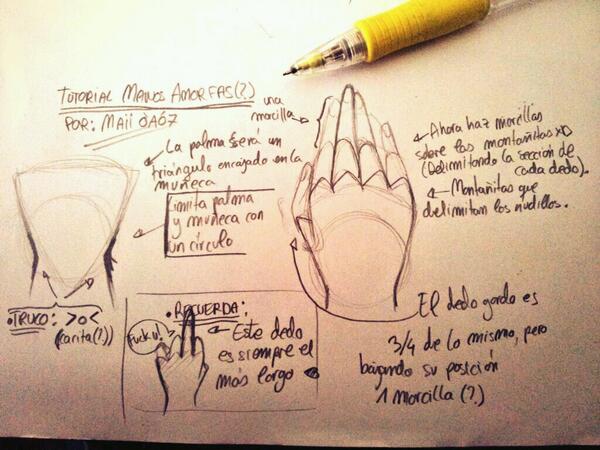 TUTORIAL MANOS AMORFAS(?)
POR: MAII
La palma será un
triángulo encajado en la
muñeca
Limita palma
y muñeca con
un círculo
TRUCO: >o<
(carita(?))
una
morcilla
Ahora haz morcillas
sobre las montañitas xD
(Delimitando la sección de
cada dedo).
Montañitas que
delimitan los nudillos.
RECUERDA:
Fuck u!
Este dedo
es siempre el
más largo
El dedo gordo es
3/4 de lo mismo, pero
bajando su posición
1 morcilla (?)